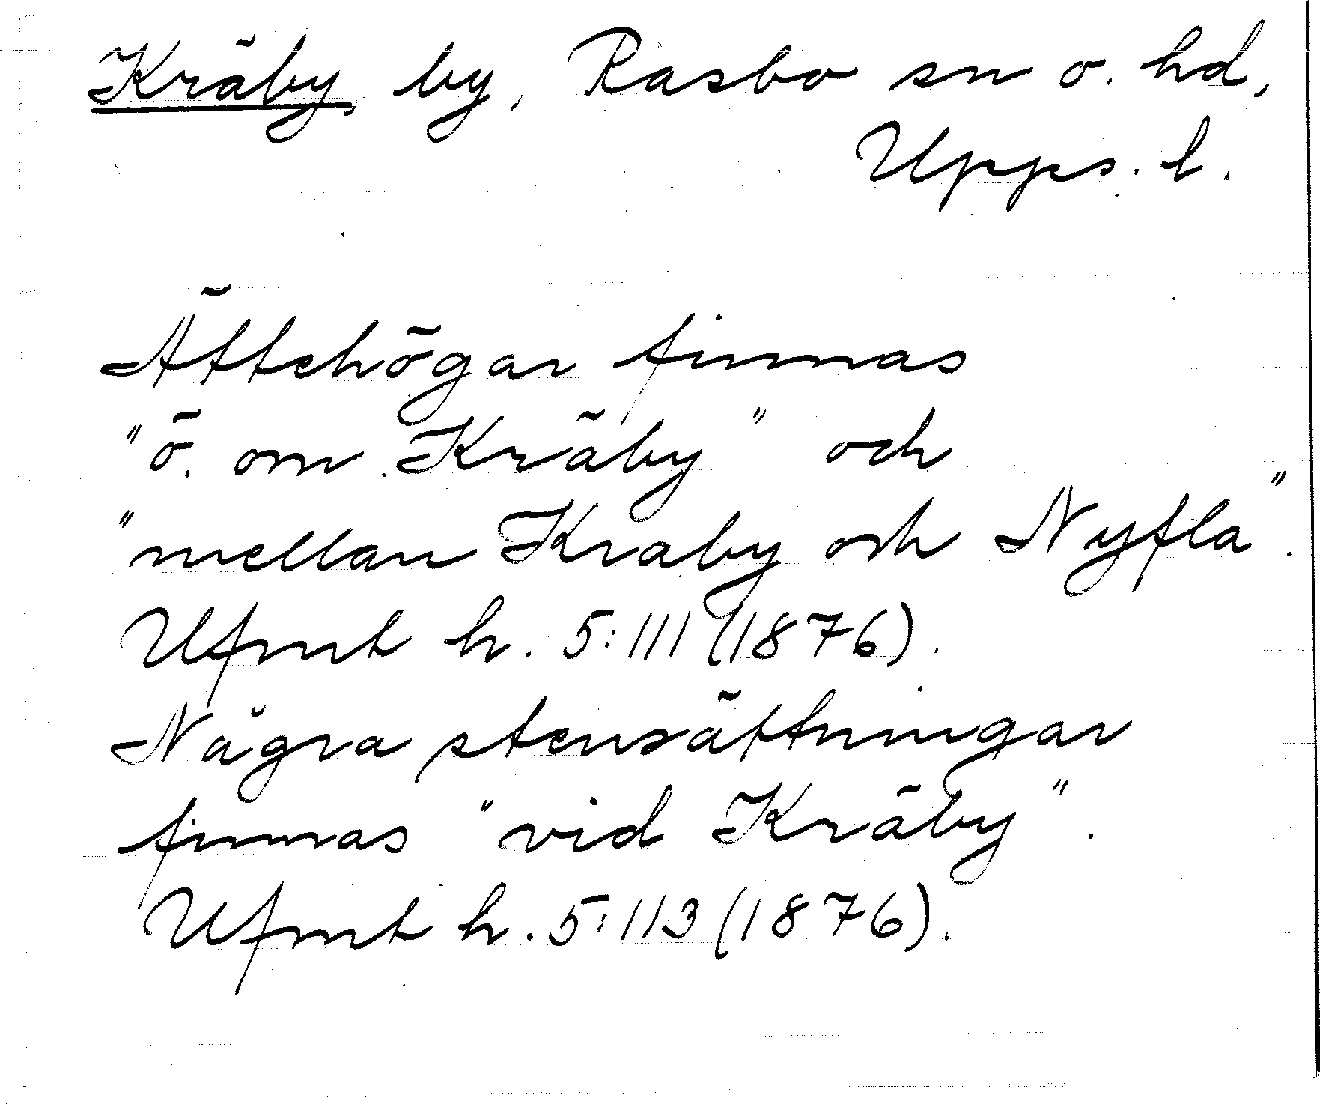 Kräby, by, Rasbo sn o. hd,
Upps. l.
Ättehögar finnas
"ö. om Kräby" och
"mellan Kraby och Nyfla".
Ufmt h. 5:111 (1876).
Några stensättningar
finnas "vid Kräby".
Ufmt h. 5:113 (1876).